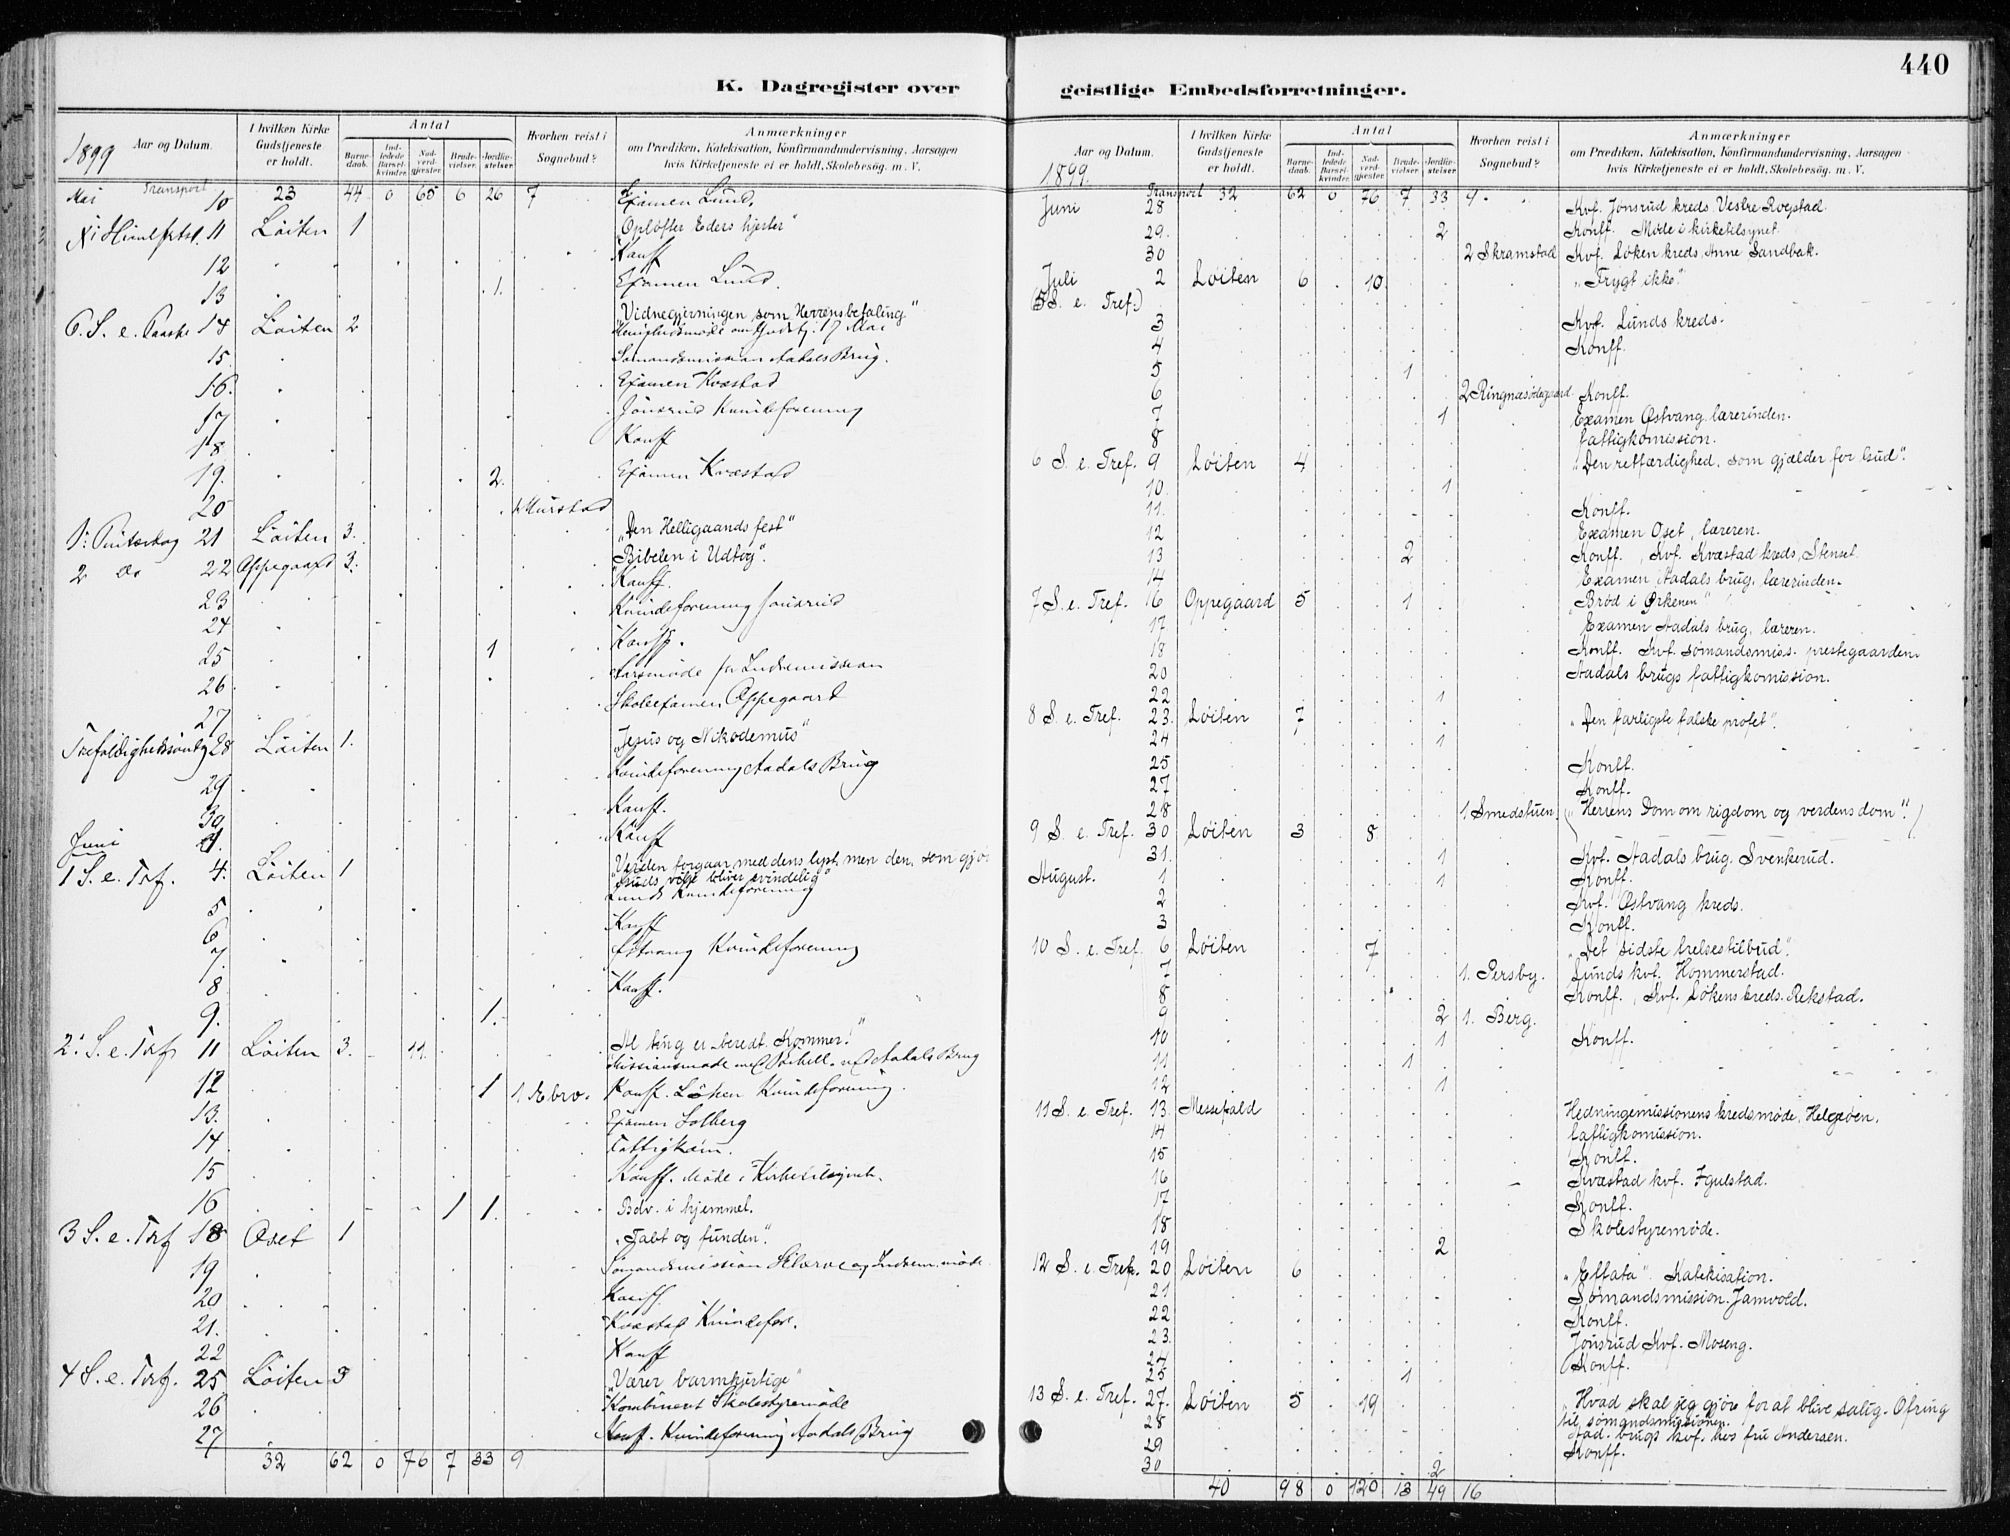 440
K. Dagregister over geistlige Embedsforretninger.
Aar og Datum.
I hvilken Kirke Gudstjeneste er holdt.
Antal
Barnedaab.
Indledede Barselkvinder.
Nadverdgjæster.
Brudevielser.
Jordfæstelser.
Hvorhen reist i Sognebud?
Anmærkninger
om Prædiken, Katekisation, Konfirmandundervisning, Aarsagen
hvis Kirketjeneste ei er holdt, Skolebesøg. m. V.
1899
Transport 23 44 0 65 6 26 7
Mai 10 Examen Lund.
11 Löiten 1 "Opløfter Eders hjerter"
12 Konff
13 1. Examen Lund.
6. S. e. Paaske 14 Löiten 2 "Vidnegjerningen som Herrens befaling"
15.
16. Examen Kvæstad
17 Jönsrud Kvindeforening
18 Konff
19. 2. Examen Kvæstad
20
21 Löiten 3. "Den Helligaands fest"
2 do 22 Oppegaard 3. "Bibelen i Udtog".
23 Konff.
24 Kvindeforening Jönsrud
25 1 Konff.
26 Aarsmøde for Indremission
27 Skoleexamen Oppegaard
Trefoldighedssöndag 28 Löiten 1. "Jesus og Nikodemus"
29 Kvindeforening Aadals Brug
30 Konff.
Juni Konff
1 S. e. Tref. 4. Löiten 1 "Verden forgaar med dens lyst, men den, som gjør
Guds vilje bliver evindelig"
5 Lunds Kvindeforening
6 Konff
7. Østvang Kvindeforening
8 Konff.
9. 1.
2. S. e. Tref 11 Löiten 3. 11. "Al ting er beredt. Kommer!"
12 1 1 Ebro. Konff. Löken Kvindeforening
13. Examen Solberg
14. Fattigkom.
15 Konff. Møde i Kirketilsynet.
16 1 1. Bdv. i hjemmet.
3 S. e. Tref 18 Oset 1 "Tabt og funden".
19 Sømandsmission
20 Konff.
21. Kvæstad Kvindefor.
22 Konff
4 S. e. Tref. 25 Löiten 3 "Værer barmhjertige"
26 Kombineret Skolestyremøde
27 Konf. Kvindeforening Aadals Brug
32 62 0 76 7 33 9
Aar og Datum.
I hvilken Kirke Gudstjeneste er holdt.
Antal
Barnedaab.
Indledede Barselkvinder.
Nadverdgjæster.
Brudevielser.
Jordfæstelser.
Hvorhen reist i Sognebud?
Anmærkninger
om Prædiken, Katekisation, Konfirmandundervisning, Aarsagen
hvis Kirketjeneste ei er holdt, Skolebesøg. m. V.
1899.
Transport 32 62 0 76 7 33 9.
Juni 28 Kvf. Jønsrud kreds Vestre Rogstad.
29. 2 Konff. Møde i kirketilsynet.
30 2 Skramstad Kvf. Løken kreds, Anne Sandbak.
Juli 2 Løiten 6 10 "Frygt ikke".
(5 S. e. Tref.)
3 Kvf. Lunds kreds.
4 Konff.
5 1
6 2 Ringnæsødegaard. Konff.
7 1 Examen Østvang, lærerinden.
8 Fattigkomission.
6 S. e. Tref. 9 Løiten 4 "Den retfærdighed, som gjælder for Gud".
10. 1
11. Konff.
12 Examen Oset, læreren.
13 2 Konff., Kvf. Kvæstad kreds, Stenset.
14 Examen Aadals brug, lærerinden.
7 S. e. Tref. 16 Oppegaard 5 1 "Brød i Ørkenen"
17 Examen Aadals brug, læreren.
18 Konff. Kvf. sømandsmiss. prestegaarden.
20 Aadals brugs fattigkomission.
22 1
8 S. e. Tref. 23. Løiten 7 "Den farligste falske profet".
24 1
25 Konff.
27 Konff.
28 1 Smedstuen.
9 S. e. Tref. 30 Løiten 3 8 "Herrens Dom om rigdom og verdens dom".
31. 1 Kvf. Aadals brug. Svenkerud.
August. 1 1 Konff.
2 Kvf. Østvang kreds.
3 Konff.
10 S. e. Tref. 6 Løiten 7 "Det sidste frelsestilbud".
7 1. Persby. Lunds kvf. Hommerstad.
8 Konff., Kvf. Løkens kreds. Rekstad.
9 2 1. Berg.
10 1 Konff.
11 1
12 1
11 S. e. Tref. 13. Messefald Hedningemissionens kredsmøde, Helgøen.
14 Fattigkomission.
15 Konff.
16 Kvæstad kvf. Igulstad.
17 Konff.
18 Skolestyremøde.
19 2
12 S. e. Tref. 20 Løiten 6 "Effata" Katekisation.
21 Sømandsmission. Jamvold.
22 Konff.
23. Jønsrud Kvf. Moseng.
24 Konff.
25 1
13 S. e. Tref. 27. Løiten 5 19 "Hvad skal jeg gjøre for at blive salig. Ofring
til sømandsmissionen.
28 Aad. brugs kvf. hos fru Andersen.
29 Konff.
30 2
40 98 0 120 13 49 16